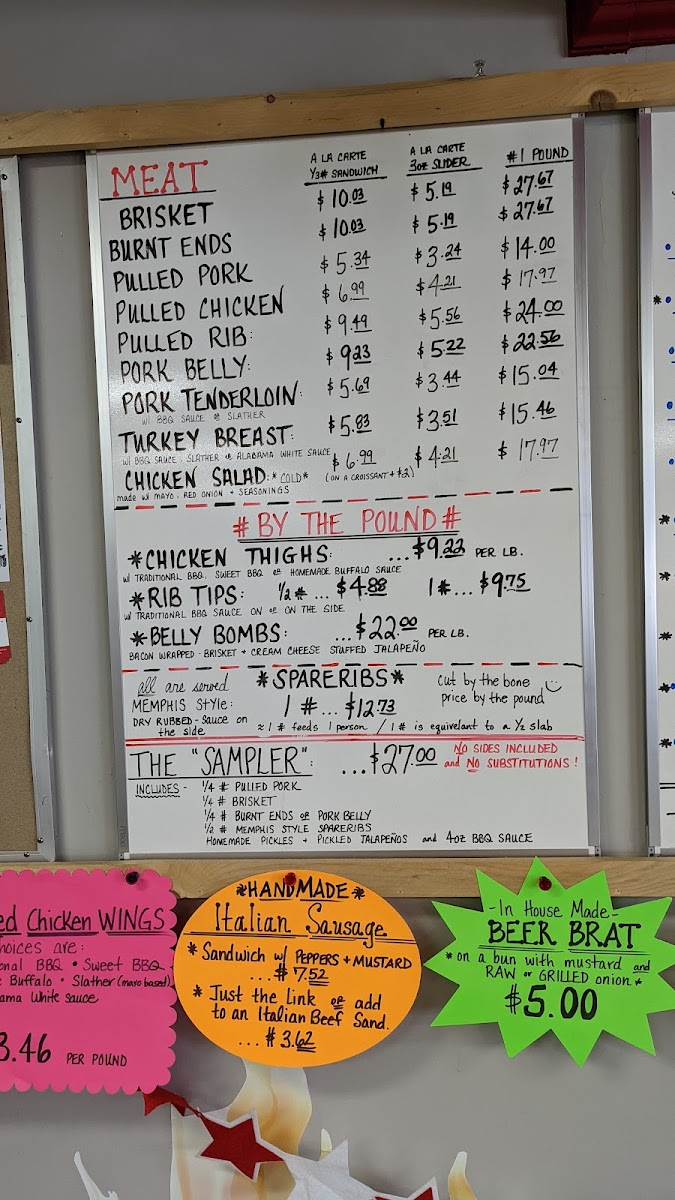 MEAT
A LA CARTE
1/3# SANDWICH
A LA CARTE
3oz SLIDER
#1 POUND
BRISKET $10.03 $5.19 $27.67
BURNT ENDS $10.03 $5.19 $27.67
PULLED PORK $5.34 $3.24 $14.00
PULLED CHICKEN $6.99 $4.21 $17.97
PULLED RIB: $9.49 $5.56 $24.00
PORK BELLY: $9.23 $5.22 $22.56
PORK TENDERLOIN: $5.69 $3.44 $15.04
w/ BBQ SAUCE or SLATHER
TURKEY BREAST: $5.83 $3.51 $15.46
w/ BBQ SAUCE, SLATHER or ALABAMA WHITE SAUCE
CHICKEN SALAD: *COLD* $6.99 $4.21 $17.97
(ON A CROISSANT + $2)
made w/ mayo, RED ONION + SEASONINGS
# BY THE POUND #
*CHICKEN THIGHS: ...$9.22 PER LB.
w/ TRADITIONAL BBQ, SWEET BBQ or HOMEMADE BUFFALO SAUCE
*RIB TIPS: 1/2# ... $4.88 1#... $9.75
w/ TRADITIONAL BBQ SAUCE ON or ON THE SIDE
*BELLY BOMBS: ...$22.00 PER LB.
BACON WRAPPED - BRISKET + CREAM CHEESE STAFFED JALAPEÑO
all are served
MEMPHIS STYLE:
DRY RUBBED - SAUCE on
the side
*SPARERIBS*
1 # ... $12.73
cut by the bone
price by the pound
≈ 1# feeds 1 person / 1# is equivelant to a 1/2 slab
THE "SAMPLER": ...$27.00
NO SIDES INCLUDED
and NO SUBSTITUTIONS!
INCLUDES - 1/4 # PULLED PORK
1/4 # BRISKET
1/4 # BURNT ENDS or PORK BELLY
1/2 # MEMPHIS STYLE SPARERIBS
HOMEMADE PICKLES + PICKLED JALAPEÑOS and 4oz BBQ SAUCE
ed Chicken WINGS
hoices are:
onal BBQ • Sweet BBQ
Buffalo • Slather (mayo based)
ama White sauce
3.46 PER POUND
*HANDMADE*
Italian Sausage
* Sandwich w/ PEPPERS + MUSTARD
... $7.52
* Just the Link or add
to an Italian Beef Sand.
... $3.62
- In House Made -
BEER BRAT
* on a bun with mustard and
RAW or GRILLED onion *
$5.00